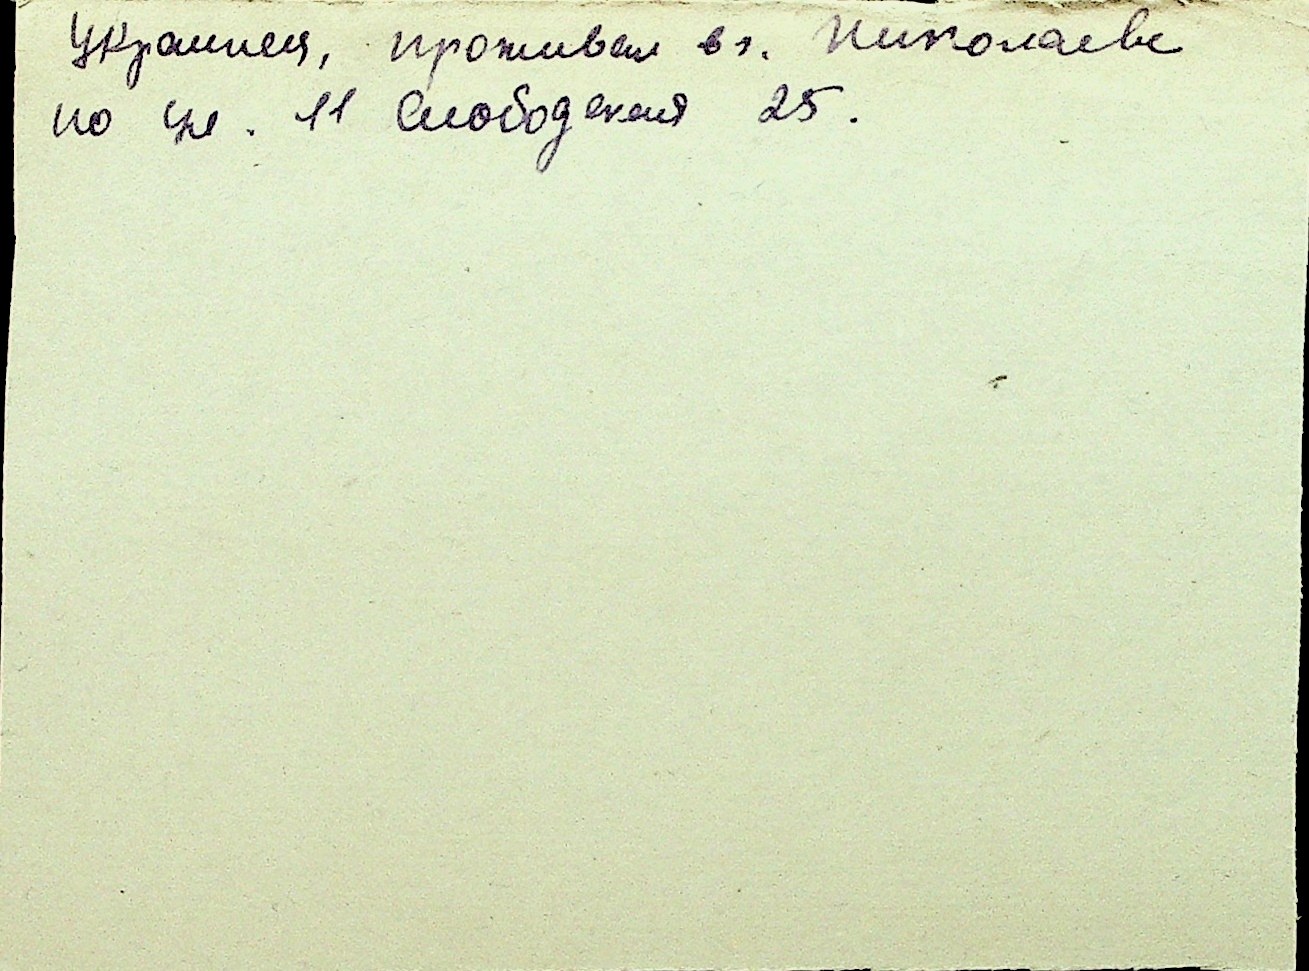 Украинец, проживал в г. Николаеве
по ул. 11 Слободская 25.